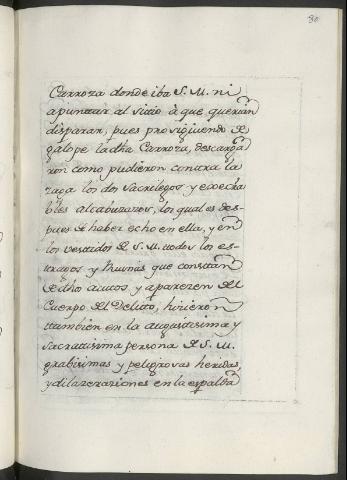 80
Carroza donde iba S. M. ni
apuntar al sitio à que querian
disparar, pues prosiguiendo de
galope la dha Carroza, descarga
ron como pudieron contra la
zaga los dos sacrilegos y execra
bles alcabuzazos, los quales des-
pues de haber echo en ella, y en
los vestidos de S. M. todos los es-
tragos y que constan
de dho autos, y aparezen del
Cuerpo del Delitto, hirieron
tambien en la augustissima y
sacratissima persona de S. M.
grabisimas y peligrosas heridas,
y dilazeraziones en la espalda